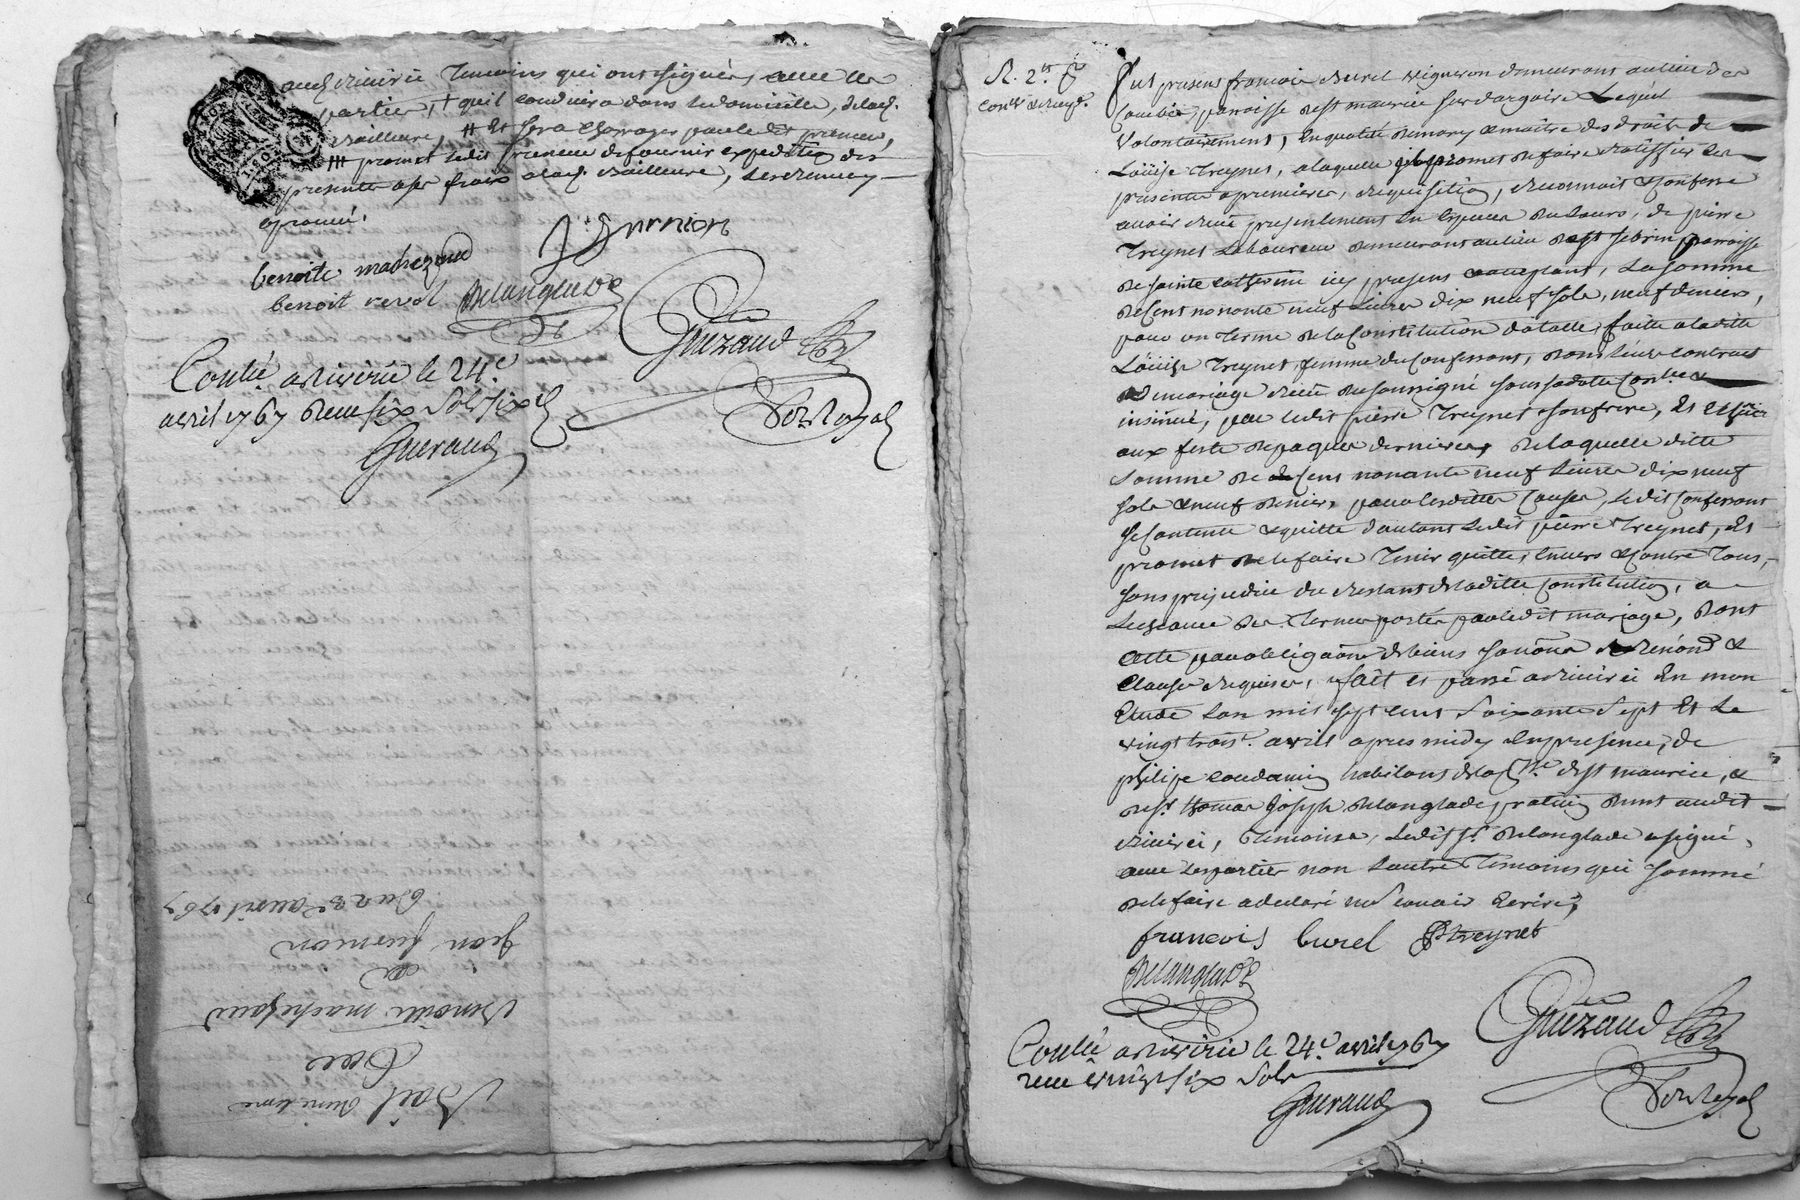 audt Riverie, temoins qui ont signés, avec les
parties, + qu'il conduira dans le domicille, de lad.
Bailleure, # Et sera chargés par ledit preneur,
promet ledit preneur de fournir expedition des
presentes a ses fraix a lad. Bailleure,
aprouvé.
J. Gurnion
benoite machezaud
benoit revol Delanglade
Guezaud
Nore Royal
Conllé a Riverie le 24e
avril 1767 Receu six Sols six d
Gueraud
Bail
Pour
Benoitte machesaud
a
Jean Gurnion
Du 23e avril 1767
R. 2tt
Conlle et Expé.
Fut present françois Burel vigneron demeurant au lieu de
paroisse de st maurice sur dargoire Lequel
Volontairement, En qualité de mary & maitre des droits de
Loüise Treynet, a laquelle il promet de faire Ratiffier les
presentes a premiere requisition, Reconnoit & Confesse
avoir Reçu presentement En Especes du Cours, de pierre
Treynet Laboureur demeurant au lieu de paroisse
de sainte Catherine icy present & acceptant, La somme
de Cent nonante neuf Livres dix neuf sols, neuf deniers,
pour un terme de la Constitution dotalle, faitte a laditte
Loüise Treynet, femme du Confessant, dans leur contract
de mariage Reçu du soussigné sous sa datte Conllé &
insinué, par ledit pierre Treynet son frere, Et
aux feste de paques dernieres, de laquelle ditte
somme de Cent nonante neuf Livres dix neuf
sols & neuf deniers, pour lesdittes Causes, ledit Confessant
se Contente & quitte d'autant Ledit pierre Treynet, Et
promet de le faire tenir quitte, Envers & Contre tous,
sans prejudice du Restant de laditte Constitution, a
Lecheance des termes portés par ledit mariage, dont
acte par obligaõns de biens &
Clauses Requises, fait et passé a Riverie En mon
Etude Lan mil sept cent soixante sept Et Le
vingt trois. avril apres midy En presence, de
philipe habitant de la psse. de st maurice, &
de sr. thomas Joseph Delanglade praticien dmt audit
Riverie, temoins, Ledit sr. Delanglade a signé,
avec les parties non Lautre temoins qui sommé
de le faire a declaré ne scavoir Ecrire,
françois burel P treynet
Delanglade
Guezaud
Nore Royal
Conllé a Riverie le 24e. avril 1767
receu vingt six Sols
Gueraud